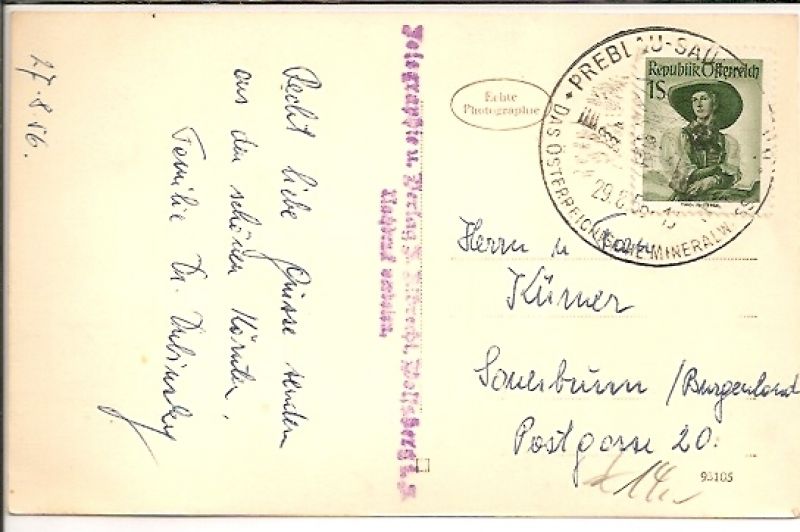 27.8.56.
Recht liebe Grüsse senden
aus dem schönen Kärnten,
Familie Dr. Dubinsky
Photographie u. Verlag F. Wolfsberg i. K.
Nachdruck verboten.
Echte
Photographie
PREBLAU-SAU
DAS ÖSTERREICHISCHE MINERALW
29.8.56
Republik Österreich
1S
Herrn u Frau
Kürner
Sauerbrunn /Burgenland
Postgasse 20.
93105